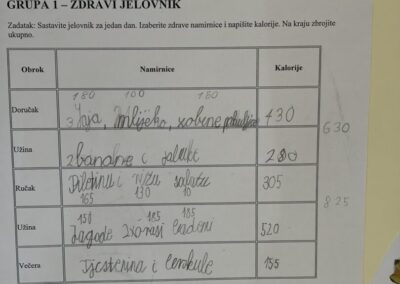 GRUPA 1 – ZDRAVI JELOVNIK
Zadatak: Sastavite jelovnik za jedan dan. Izaberite zdrave namirnice i napišite kalorije. Na kraju zbrojite
ukupno.
Obrok Namirnice Kalorije
180 100 180
Doručak 3 Jaja, mlijeko, zobene 430
630
Užina 2 banane i
Ručak Piletina i riža salata 305
165 130 10
825
150 185 185
Užina Jagode 2 orasi 520
Večera Tjestenina i 155